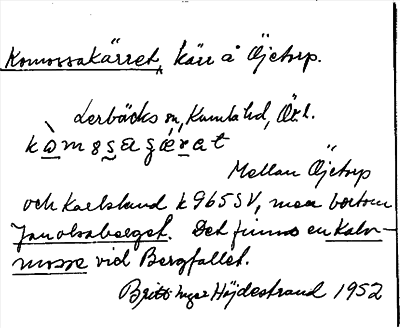 Komossakärret, kärr å Öjetorp.
Lerbäcks sn, Kumla hd, Ör. l.
kòmosagærat
Mellan Öjetorp
och Karlslund k 965 SV, men bortom
Janolsaberget. Det finns en Kalv-
mosse vid Bergfallet.
Britt Inger Höjdestrand 1952